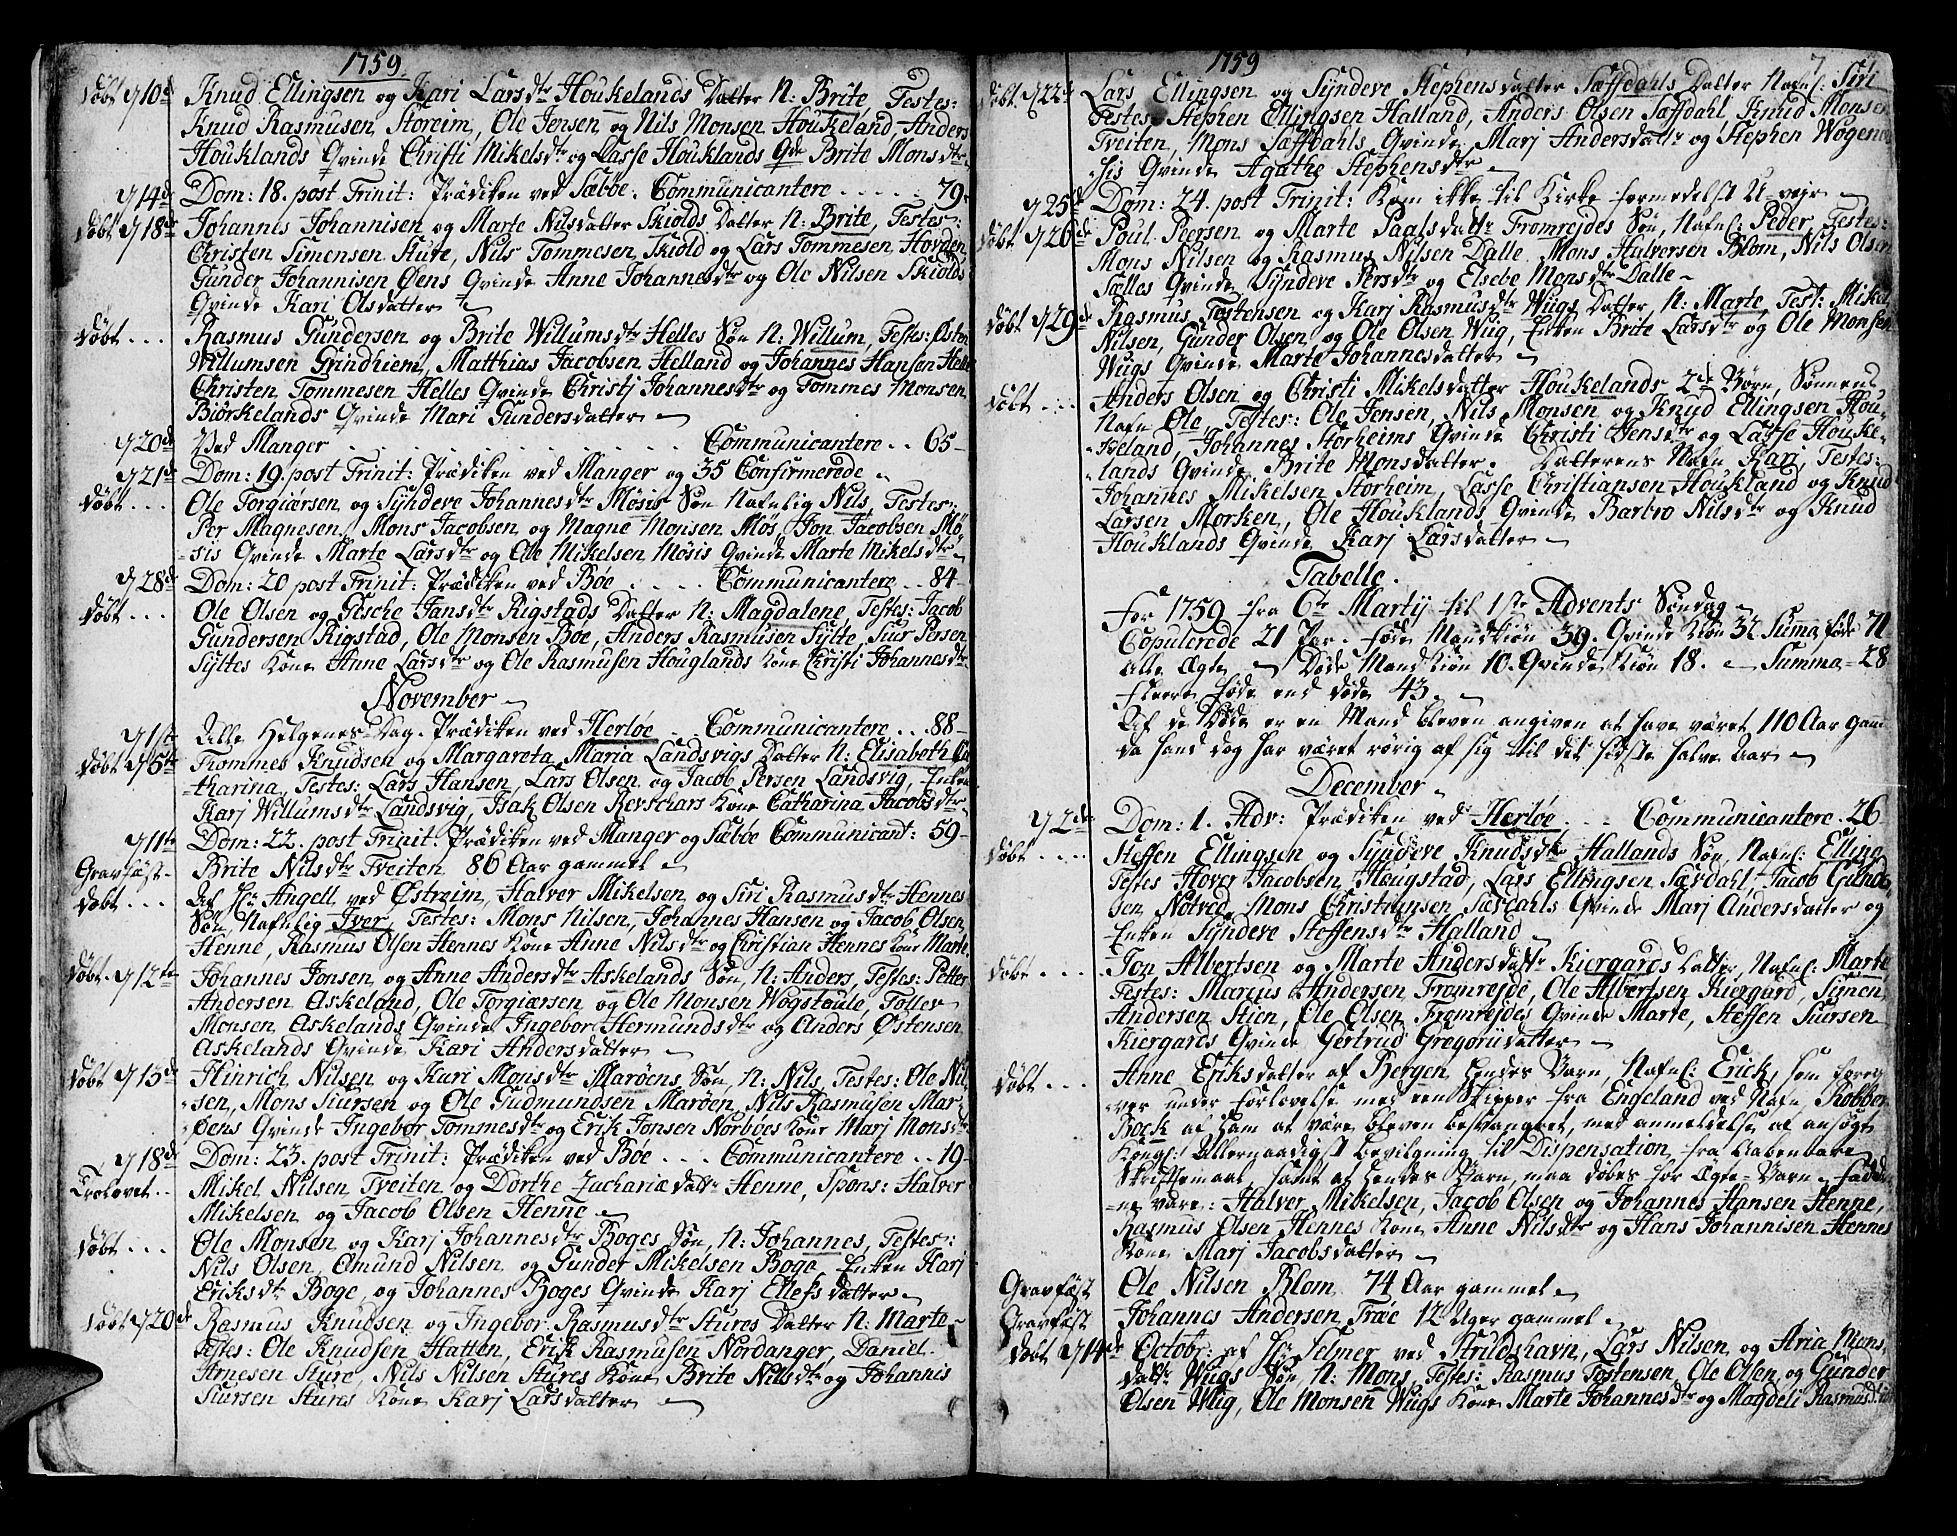 1759.
Døbt d 10de Knud Ellingsen og Kari Larsdtr Houkelands Datter N: Brite, Testes:
Knud Rasmusen Storeim, Ole Jensen og Nils Monsen Houkeland, Anders
Houklands Qvinde Christi Mikelsdtr og Lasse Houklands Qde Brite Monsdtr
d 14de Dom: 18. post Trinit: Prædiken ved Sæbøe. Communicantere . . . . . 79.
Døbt d 18de Johannes Johannisen og Marte Nilsdatter Skiolds Datter N: Brite, Testes:
Christen Simensen Sture, Nils Tommesen Skiold og Lars Tommesen Hovden
Gunder Johannisen Øens Qvinde Anne Johannesdtr og Ole Nilsen Skiolds
Qvinde Kari Olsdatter
Døbt . . . Rasmus Gundersen og Brite Willumsdtr Helles Søn N: Willum, Testes: Østen
Willumsen Grindheim, Matthias Jacobsen Helland og Johannes Hansen Helle
Christen Tommesen Helles Qvinde Christj Johannesdtr og Tommes Monsen
Biørkelands Qvinde Mari Gundersdatter
d 20de Ved Manger . . . . . . . . Communicantere . . 65
d 21de Dom: 19. post Trinit: Prædiken ved Manger og 35 Confirmerede
Døbt . . . Ole Torgiersen og Syndeve Johannesdtr Møsis Søn Nafnlig Nils, Testes:
Per Magnesen, Mons Jacobsen og Magne Monsen Møs, Jon Jacobsen Mø-
sis Qvinde Marte Larsdtr og Ole Mikelsen Møsis Qvinde Marte Mikelsdtr
d 28de Dom: 20 post Trinit: Prædiken ved Bøe . . . . Communicantere . . 84
Døbt . . . Ole Olsen og Gesche Jansdtr Rigstads Datter N: Magdalene, Testes: Jacob
Gundersen Rigstad, Ole Monsen Bøe, Anders Rasmusen Sylte, Siur Persen
Syltes Kone Anne Larsdtr og Ole Rasmusen Houglands Kone Christi Johannesdtr
November
d 1ste Alle Helgenes-Dag. Prædiken ved Herløe . Communicantere . . . 88
Døbt d 5te Trommes Knudsen og Margareta Maria Landsvigs Datter N: Elisabeth Ca-
tharina, Testes: Lars Hansen, Lars Olsen og Jacob Persen Landsvig, Enken
Karj Willumsdtr Landsvig, Isak Olsen Revschars Kone Catharina Jacobsdtr
d 11te Dom: 22. post Trinit: Prædiken ved Manger og Sæbøe Communicant: 59
Gravfæst. Brite Nilsdtr Tveiten 86 Aar gammel
Døbt . . . Af Hr: Angell ved Østreim, Halver Mikelsen og Siri Rasmusdtr Hennes
Søn, Nafnlig Iver, Testes: Mons Nilsen, Johannes Hansen og Jacob Olsen
Henne, Rasmus Olsen Hennes Kone Anne Nilsdtr og Christian Hennes Kone Marte
Døbt. d 12te Johannes Jonsen og Anne Andersdtr Askelands Søn, N: Anders, Testes: Petter
Andersen Askeland, Ole Torgiærsen og Ole Monsen Wogstøule, Tollev
Monsen Askelands Qvinde Ingebor Hermundsdtr og Anders Østensen
Askelands Qvinde Kari Andersdatter
Døbt d 15de Hinrich Nilsen og Kari Monsdtr Marøens Søn, N: Nils, Testes: Ole Nil-
sen, Mons Siursen og Ole Gudmundsen Marøen, Nils Rasmusen Mar-
øens Qvinde Ingebor Tommesdtr og Erik Jonsen Norbøes Kone Marj Monsdtr
d 18de Dom: 23. post Trinit: Prædiken ved Bøe . . . Communicantere . . 19
Trolovet . . Mikel Nilsen Tveiten og Dorthe Zachariædatr Henne, Spons: Halver
Mikelsen og Jacob Olsen Henne
Døbt . . . Ole Monsen og Karj Johannesdtr Boges Søn, N: Johannes, Testes:
Nils Olsen, Omund Nilsen og Gunder Mikelsen Boge Enken Karj
Eriksdtr Boge, og Johannes Boges Qvinde Karj Ellefsdatter
Døbt d 20de Rasmus Knudsen og Ingebor Rasmusdtr Stures Datter N: Marte
Testes: Ole Knudsen Hatten, Erik Rasmusen Nordanger, Daniel
Arnesen Sture, Nils Nilsen Stures Kone Brite Nilsdtr og Johannis
Siursen Stures Kone Karj Larsdatter
1759 7
Døbt. d 22de Lars Ellingsen og Syndeve Stephensdatter Sæffdahls Datter Nafnl: Siri
Testes Stephen Ellingsen Halland, Anders Olsen Sæffdahl, Knud Monsen
Tveiten, Mons Sæffdahls Qvinde Marj Andersdatr og Stephen Wogenes
his Qvinde Agathe Stephensdtr
d 25de Dom: 24. post Trinit: Kom ikke til Kirke formedelst U-vejr
Døbt d 26de Poul Peersen og Marte Paalsdattr Fromrejdes Søn, Nafnl: Peder, Testes:
Mons Nilsen og Rasmus Nilsen Dalle, Mons Halversen Blom, Nils Olsen
Sælles Qvinde Syndeve Persdtr og Elsebe Monsdtr Dalle
Døbt d 29de Rasmus Tostensen og Karj Rasmusdtr Wugs Datter, N: Marte, Test: Mikel
Nilsen, Gunder Olsen og Ole Olsen Wug, Enken Brite Larsdtr og Ole Monsen
Wugs Qvinde Marte Johannesdatter
Døbt . . . Anders Olsen og Christi Mikelsdatter Houkelands 2de Børn, Sønnens
Nafn Ole, Testes: Ole Jensen, Nils Monsen og Knud Ellingsen Hou-
keland, Johannes Storheims Qvinde Christi Jensdtr og Lasse Houke-
lands Qvinde Brite Monsdatter. Datterens Nafn Kari, Testes:
Johannes Mikelsen Storheim, Lasse Christiansen Houkland og Knud
Larsen Morken, Ole Houklands Qvinde Barbro Nilsdtr og Knud
Houklands Qvinde Karj Larsdatter
Tabelle.
For 1759 fra Ote Martij til 1ste Advents Søndag
Copulerede 21 Par. Fødde Mandkiøn 39. Qvinde Kiøn 32 Summa føde 71
Alle Ægte Døde Mand Kiøn 10. Qvinde Kiøn 18. Summa = 28
Fleere føde end døde 43.
Af de Døde er en Mand bleven angiven at have været 110 Aar gam
da hand dog har været rørig af sig til det sidste halve Aar
December
d 2de Dom: 1. Adv: Prædiken ved Herløe . . . Communicantere . 26
Døbt . . . . Steffen Ellingsen og Syndeve Knudsdtr Hallands Søn, Nafnl: Elling
Testes Hover Jacobsen Hougstad, Lars Ellingsen Sæfdahl, Jacob Gunder-
sen Notved, Mons Christiansen Sæfdahls Qvinde Marj Andersdatter og
Enken Syndeve Steffensdtr Halland
Døbt . . . . Jon Albertsen og Marte Andersdattr Kiergards Datter, Nafnl: Marte
Testes: Marcus Andersen Fromrejde, Ole Albertsen Kiergard, Simen
Andersen Stien, Ole Olsen Fromrejdes Qvinde Marte, Steffen Siursen
Kiergards Qvinde Gertrud Gregorijdatter
Døbt . . . Anne Eriksdatter af Bergen hendes Barn, Nafnl: Erick, som foregi-
ver under forlovelse med een Skipper fra Engeland ved Nafn Robber
Bock af ham at være bleven besvangret, med anmeldelse at ansøge
Kongl: Allernaadigst bevilgning til Dispensation fra Aabenbare
Skriftemaal samt at hendes Barn maa døbes for Ægte-Barn Fadde
ne vare: Halver Mikelsen, Jacob Olsen og Johannes Hansen Henne,
Rasmus Olsen Hennes Kone Anne Nilsdtr og Hans Johannisen Hennes
Kone Marj Jacobsdatter
Gravfæst Ole Nilsen Blom 74 Aar gammel
Gravfæst Johannes Andersen Træe 12 Uger gammel
Døbt d 14de Octobr: af Hr Selmer ved Strudshavn, Lars Nilsen og Aria Mons,
dattr Wugs Søn N: Mons, Testes: Rasmus Tostensen, Ole Olsen og Gunder
Olsen Wug, Ole Monsen Wugs Kone Marte Johannesdtr og Magdeli Rasmusd: